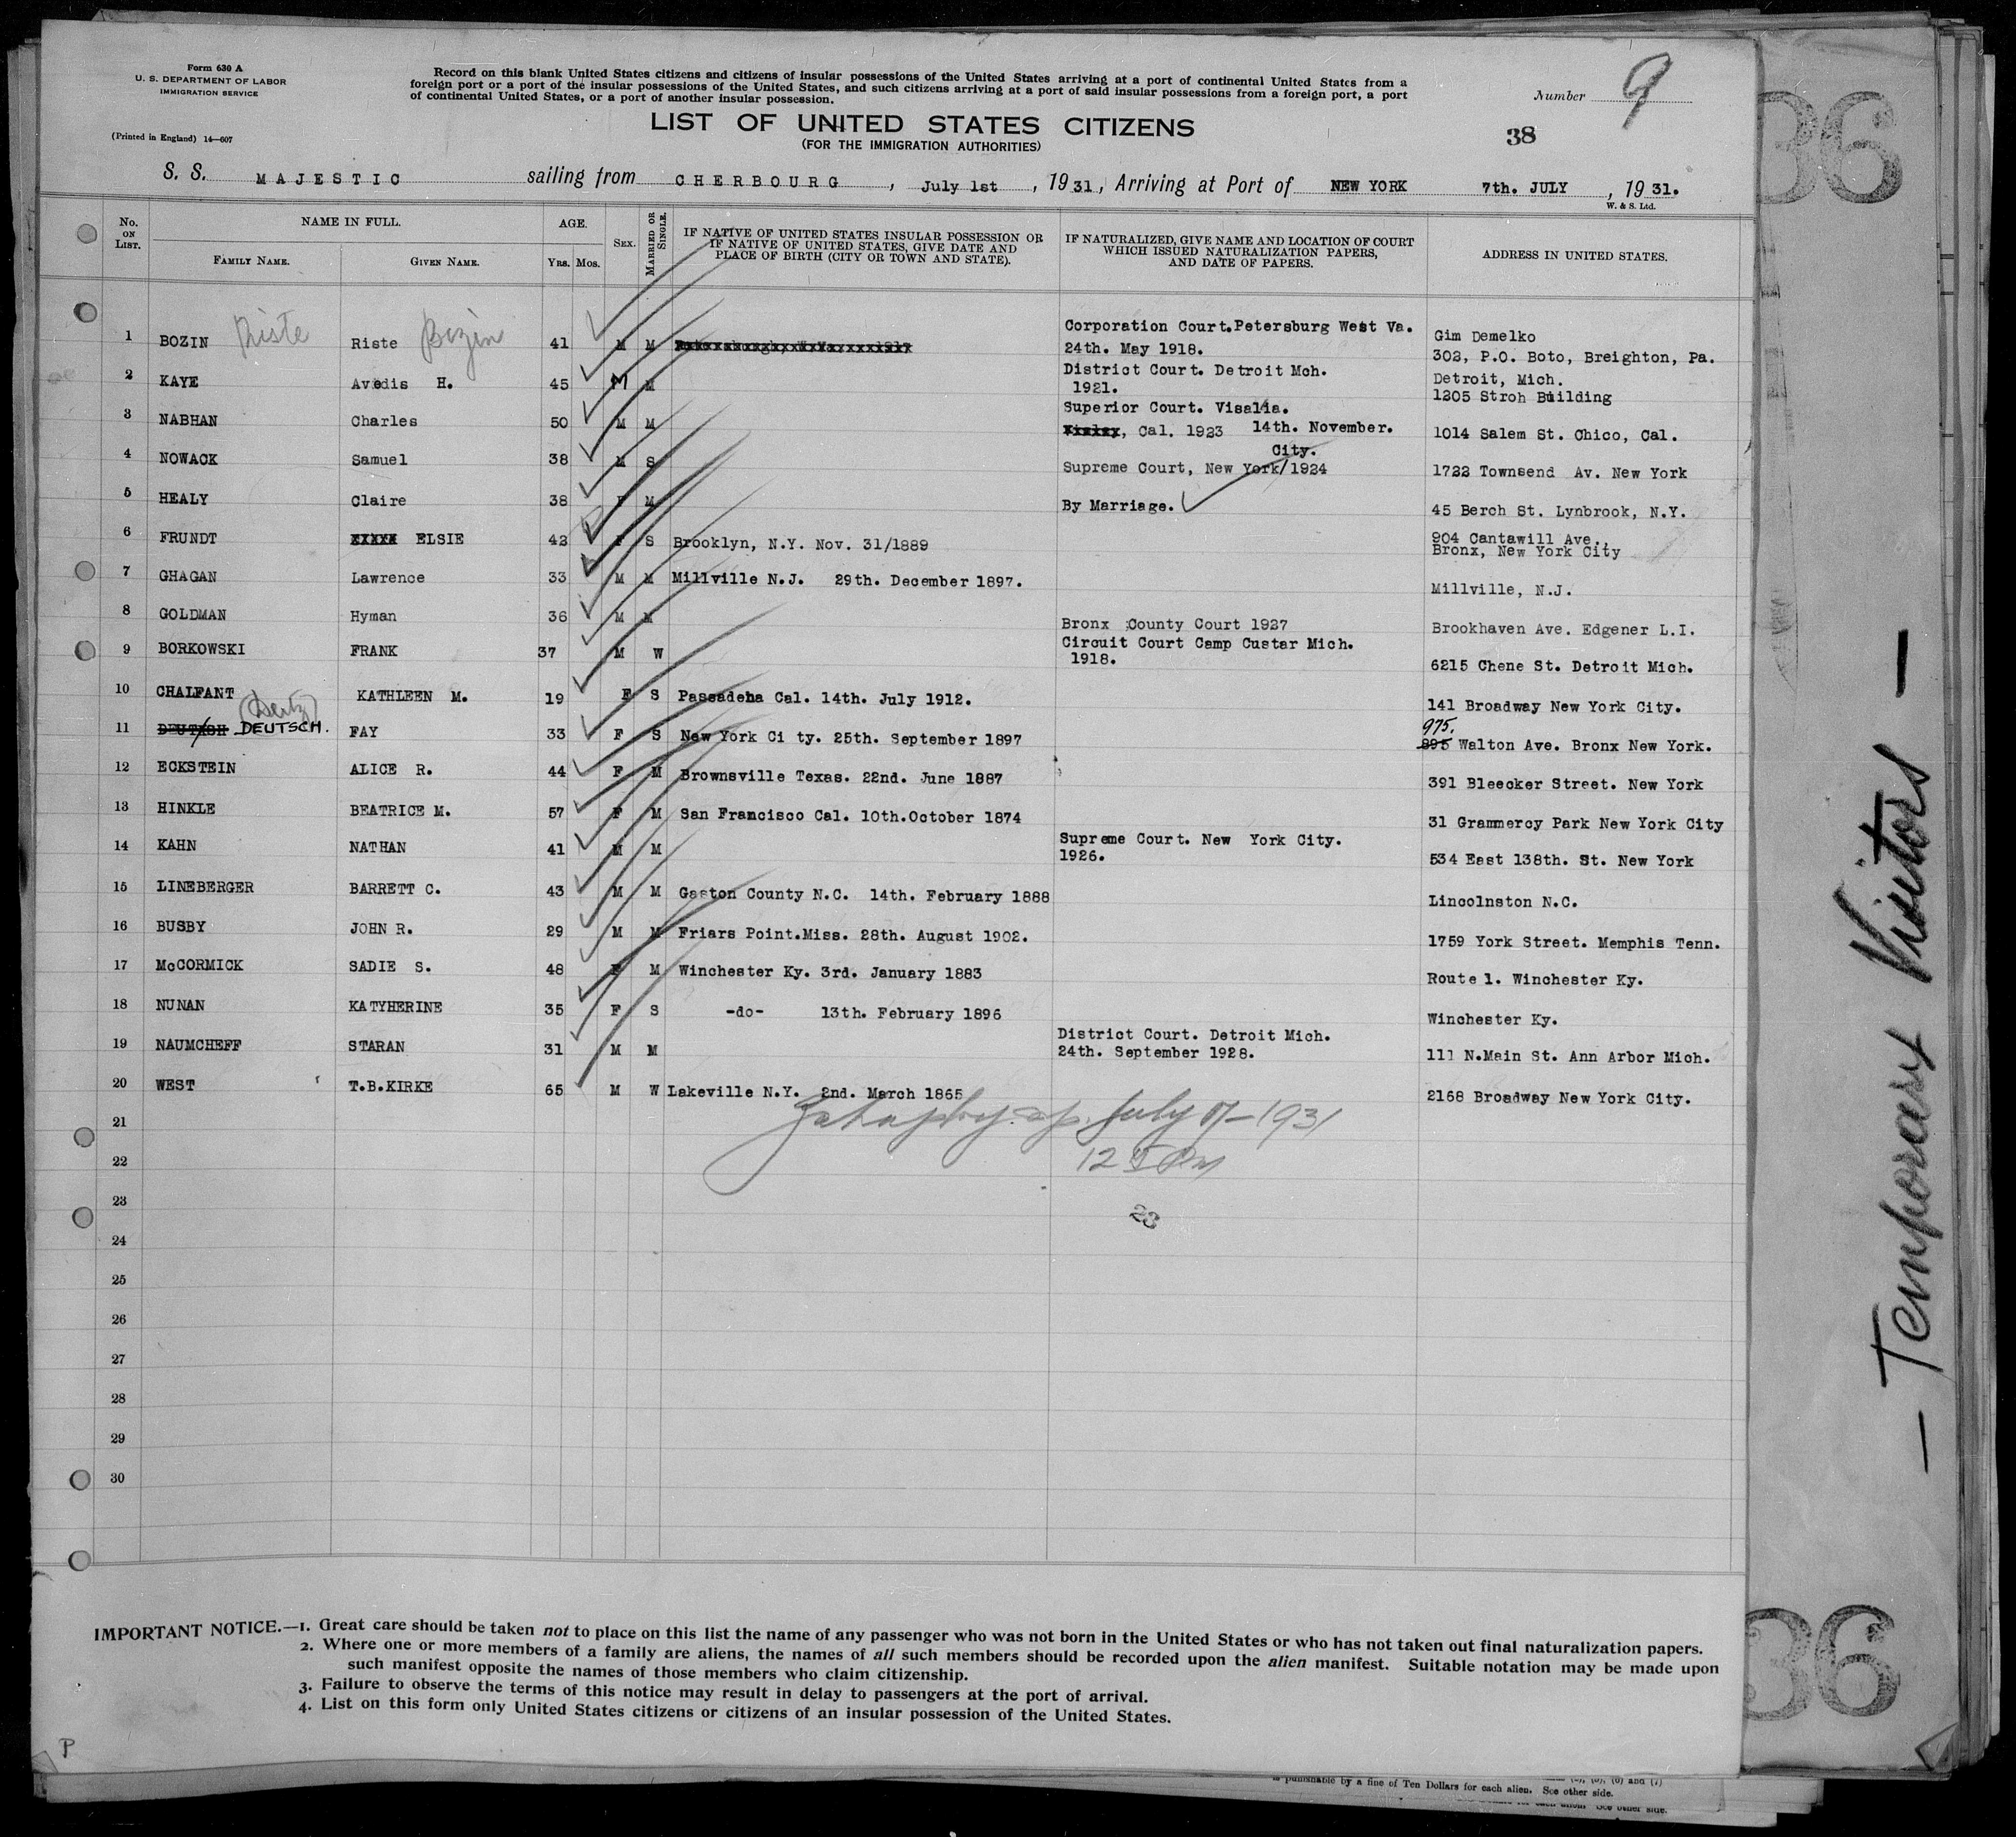 Form 630 A
U. S. DEPARTMENT OF LABOR
IMMIGRATION SERVICE
(Printed in England) 14—607
Record on this blank United States citizens and citizens of insular possessions of the United States arriving at a port of continental United States from a
foreign port or a port of the insular possessions of the United States, and such citizens arriving at a port of said insular possessions from a foreign port, a port
of continental United States, or a port of another insular possession.
Number 9
LIST OF UNITED STATES CITIZENS
(FOR THE IMMIGRATION AUTHORITIES)
38
S. S. MAJESTIC sailing from CHERBOURG, July 1st, 1931, Arriving at Port of NEW YORK 7th. JULY, 1931.
W. & S. Ltd.
No. ON LIST. NAME IN FULL. FAMILY NAME. GIVEN NAME. AGE. Yrs. Mos. SEX. MARRIED OR SINGLE. IF NATIVE OF UNITED STATES INSULAR POSSESSION OR IF NATIVE OF UNITED STATES, GIVE DATE AND PLACE OF BIRTH (CITY OR TOWN AND STATE). IF NATURALIZED, GIVE NAME AND LOCATION OF COURT WHICH ISSUED NATURALIZATION PAPERS, AND DATE OF PAPERS. ADDRESS IN UNITED STATES.
1 BOZIN Riste Riste Bozin 41 M M Corporation Court.Petersburg West Va. 24th. May 1918. Gim Demelko 302, P.O. Boto, Breighton, Pa.
2 KAYE Avedis H. 45 M M District Court. Detroit Mch. 1921. Detroit, Mich. 1205 Stroh Building
3 NABHAN Charles 50 M M Superior Court. Visalia. , Cal. 1923 14th. November. 1014 Salem St. Chico, Cal.
4 NOWACK Samuel 38 M S Supreme Court, New York/1924 City. 1722 Townsend Av. New York
5 HEALY Claire 38 F M By Marriage. 45 Berch St. Lynbrook, N.Y.
6 FRUNDT XXXXX ELSIE 42 F S Brooklyn, N.Y. Nov. 31/1889 904 Cantawill Ave., Bronx, New York City
7 GHAGAN Lawrence 33 M M Millville N.J. 29th. December 1897. Millville, N.J.
8 GOLDMAN Hyman 36 M M Bronx County Court 1927 Brookhaven Ave. Edgener L.I.
9 BORKOWSKI FRANK 37 M W Circuit Court Camp Custar Mich. 1918. 6215 Chene St. Detroit Mich.
10 CHALFANT KATHLEEN M. 19 F S Passadena Cal. 14th. July 1912. 141 Broadway New York City.
11 DEUTSCH. FAY 33 F S New York Ci ty. 25th. September 1897 975. 895 Walton Ave. Bronx New York.
12 ECKSTEIN ALICE R. 44 F M Brownsville Texas. 22nd. June 1887 391 Bleecker Street. New York
13 HINKLE BEATRICE M. 57 F M San Francisco Cal. 10th.October 1874 31 Grammercy Park New York City
14 KAHN NATHAN 41 M M Supreme Court. New York City. 1926. 534 East 138th. St. New York
15 LINEBERGER BARRETT C. 43 M M Gaston County N.C. 14th. February 1888 Lincolnston N.C.
16 BUSBY JOHN R. 29 M M Friars Point.Miss. 28th. August 1902. 1759 York Street. Memphis Tenn.
17 McCORMICK SADIE S. 48 F M Winchester Ky. 3rd. January 1883 Route 1. Winchester Ky.
18 NUNAN KATYHERINE 35 F S -do- 13th. February 1896 Winchester Ky.
19 NAUMCHEFF STARAN 31 M M District Court. Detroit Mich. 24th. September 1928. 111 N.Main St. Ann Arbor Mich.
20 WEST T.B.KIRKE 65 M W Lakeville N.Y. 2nd. March 1865 2168 Broadway New York City.
21 July 7-1931
22
23
24
25
26
27
28
29
30
IMPORTANT NOTICE.—1. Great care should be taken not to place on this list the name of any passenger who was not born in the United States or who has not taken out final naturalization papers.
2. Where one or more members of a family are aliens, the names of all such members should be recorded upon the alien manifest. Suitable notation may be made upon
such manifest opposite the names of those members who claim citizenship.
3. Failure to observe the terms of this notice may result in delay to passengers at the port of arrival.
4. List on this form only United States citizens or citizens of an insular possession of the United States.
P
36
— Temporary Visitors —
36
is punishable by a fine of Ten Dollars for each alien. See other side.
See other side.